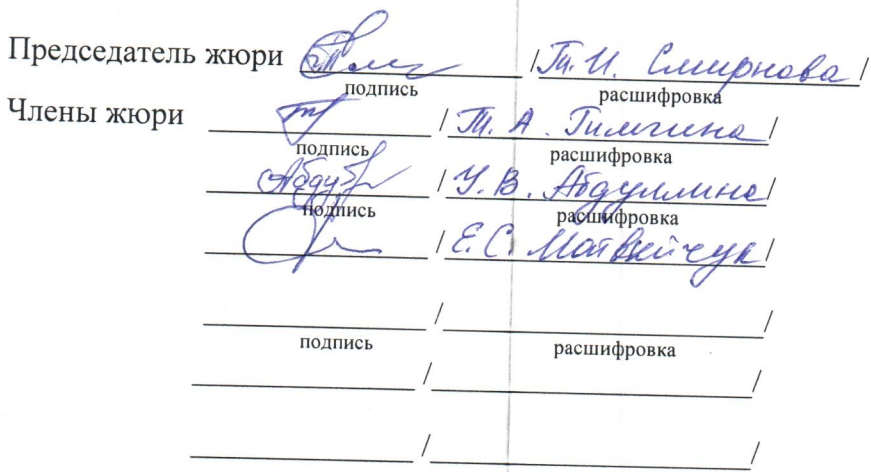 Председатель жюри / Т. И. Смирнова /
подпись расшифровка
Члены жюри / Т. А. /
подпись расшифровка
/ У. В. Абдуллина /
подпись расшифровка
/ Е. С. Матвейчук /
/ /
подпись расшифровка
/ /
/ /